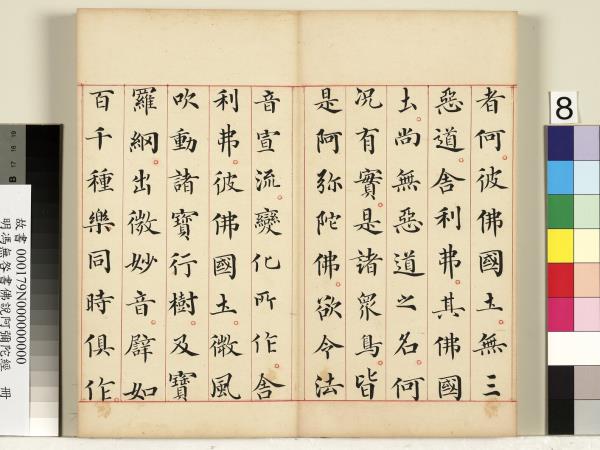 者何彼佛國土。無三
惡道。舍利弗。其佛國
土。尚無惡道之名。何
况有實。是諸衆鳥。皆
是阿弥陀佛。欲令法
音宣流。變化所作。舍
利弗。彼佛國土。微風
吹動諸寶行樹。及寶
羅網。出微妙音。譬如
百千種樂同時俱作。
8
B
故書000179N000000000
明馮無咎書佛說阿彌陀經 冊